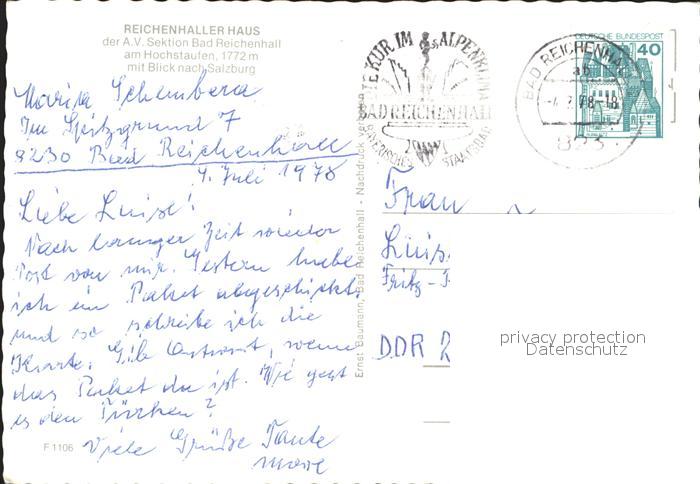 REICHENHALLER HAUS
der A.V. Sektion Bad Reichenhall
am Hochstaufen, 1772 m
mit Blick nach Salzburg
Im Spitzgrund 7
8230 Bad Reichenhall
4. Juli 1978
Liebe Luise!
Nach langer Zeit wieder
Post von mir. Gestern habe
ich ein Paket abgeschickt.
und so schreibe ich die
Karte. Gib Antwort, wenn
das Paket da ist. Wie geht
es den
Viele Grüße Tante
F 1106
Ernst Baumann, Bad Reichenhall - Nachdruck
KUR IM ALPENKLIMA
BAD REICHENHALL
BAYERISCHES STAATSBAD
BAD REICHENHALL
78-18
823
DEUTSCHE BUNDESPOST
40
Frau
Luis
Fritz-
DDR 2
privacy protection
Datenschutz